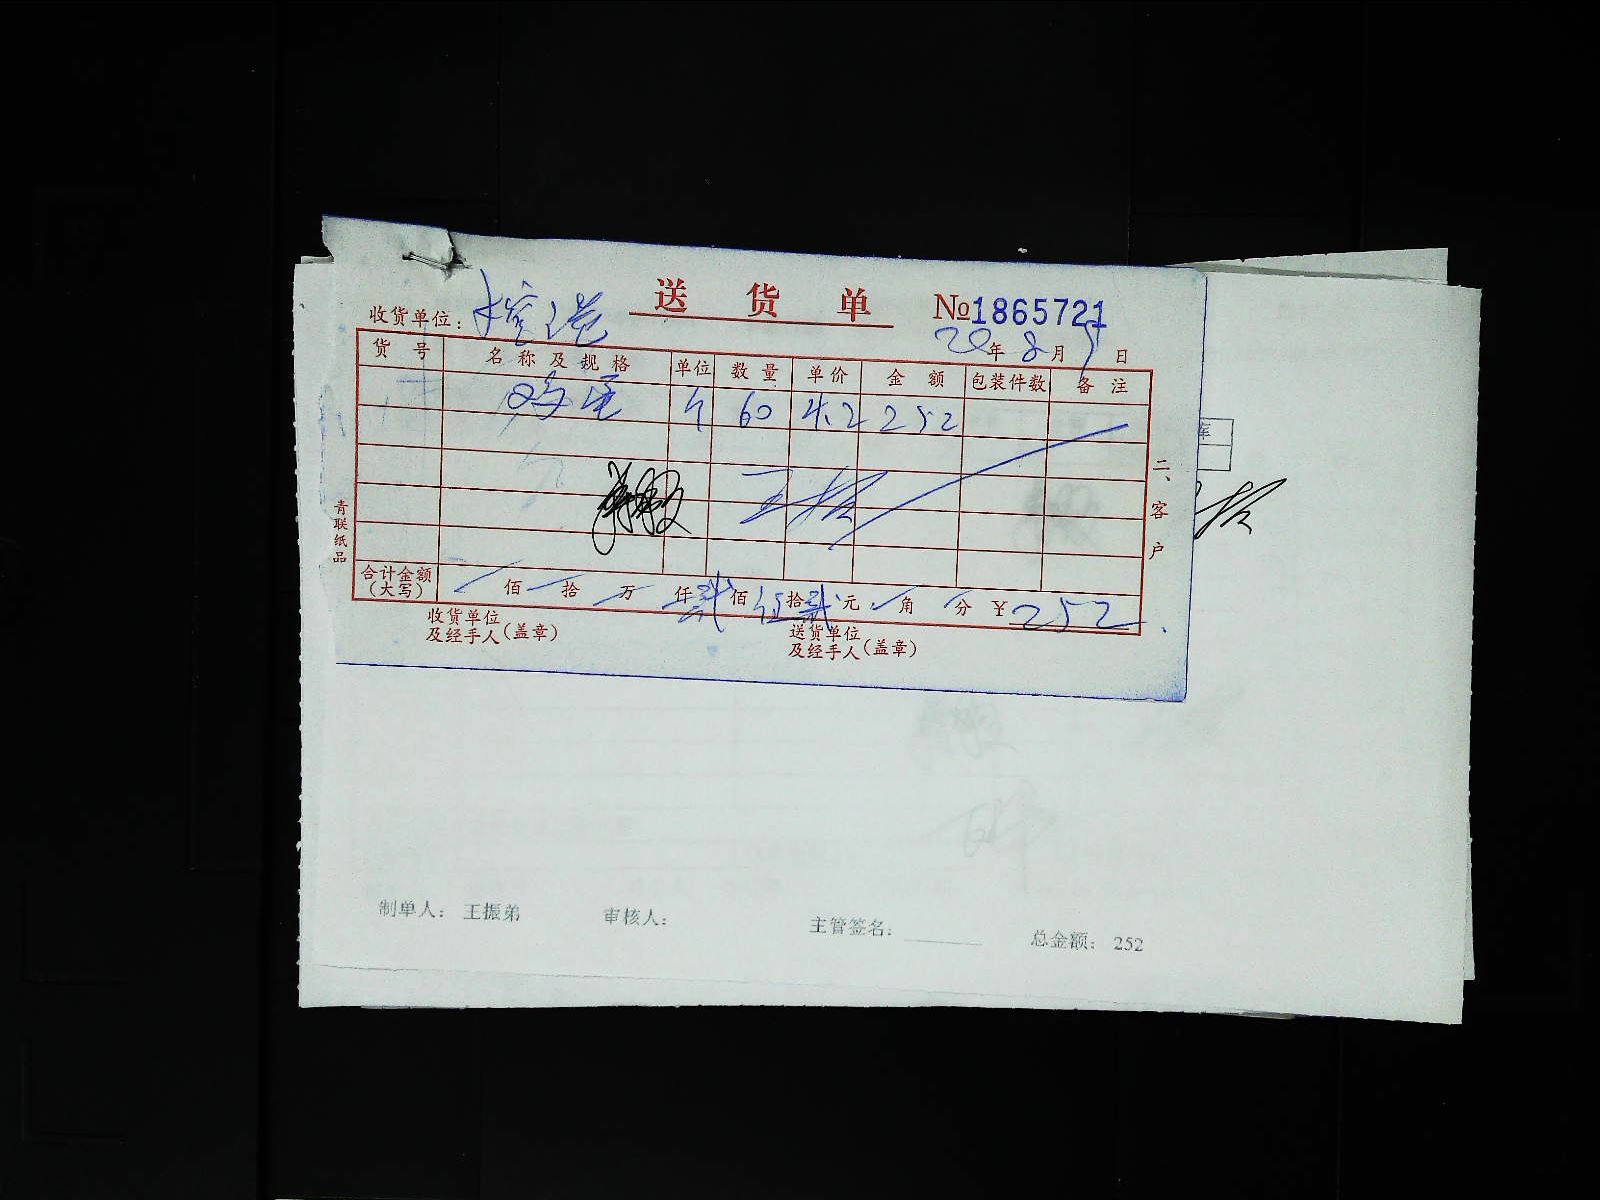 送 货 单 №1865721
收货单位：
20年8月5日
货 号 名 称 及 规 格 单位 数 量 单价 金 额 包装件数 备 注
个 60 4.2 252
王振
二、客户
青联纸品
合计金额（大写） 佰 拾 万 仟 贰 佰 伍 拾 贰 元 角 分 ￥252.
收货单位及经手人（盖章） 送货单位及经手人（盖章）
制单人： 王振弟 审核人： 主管签名： 总金额： 252